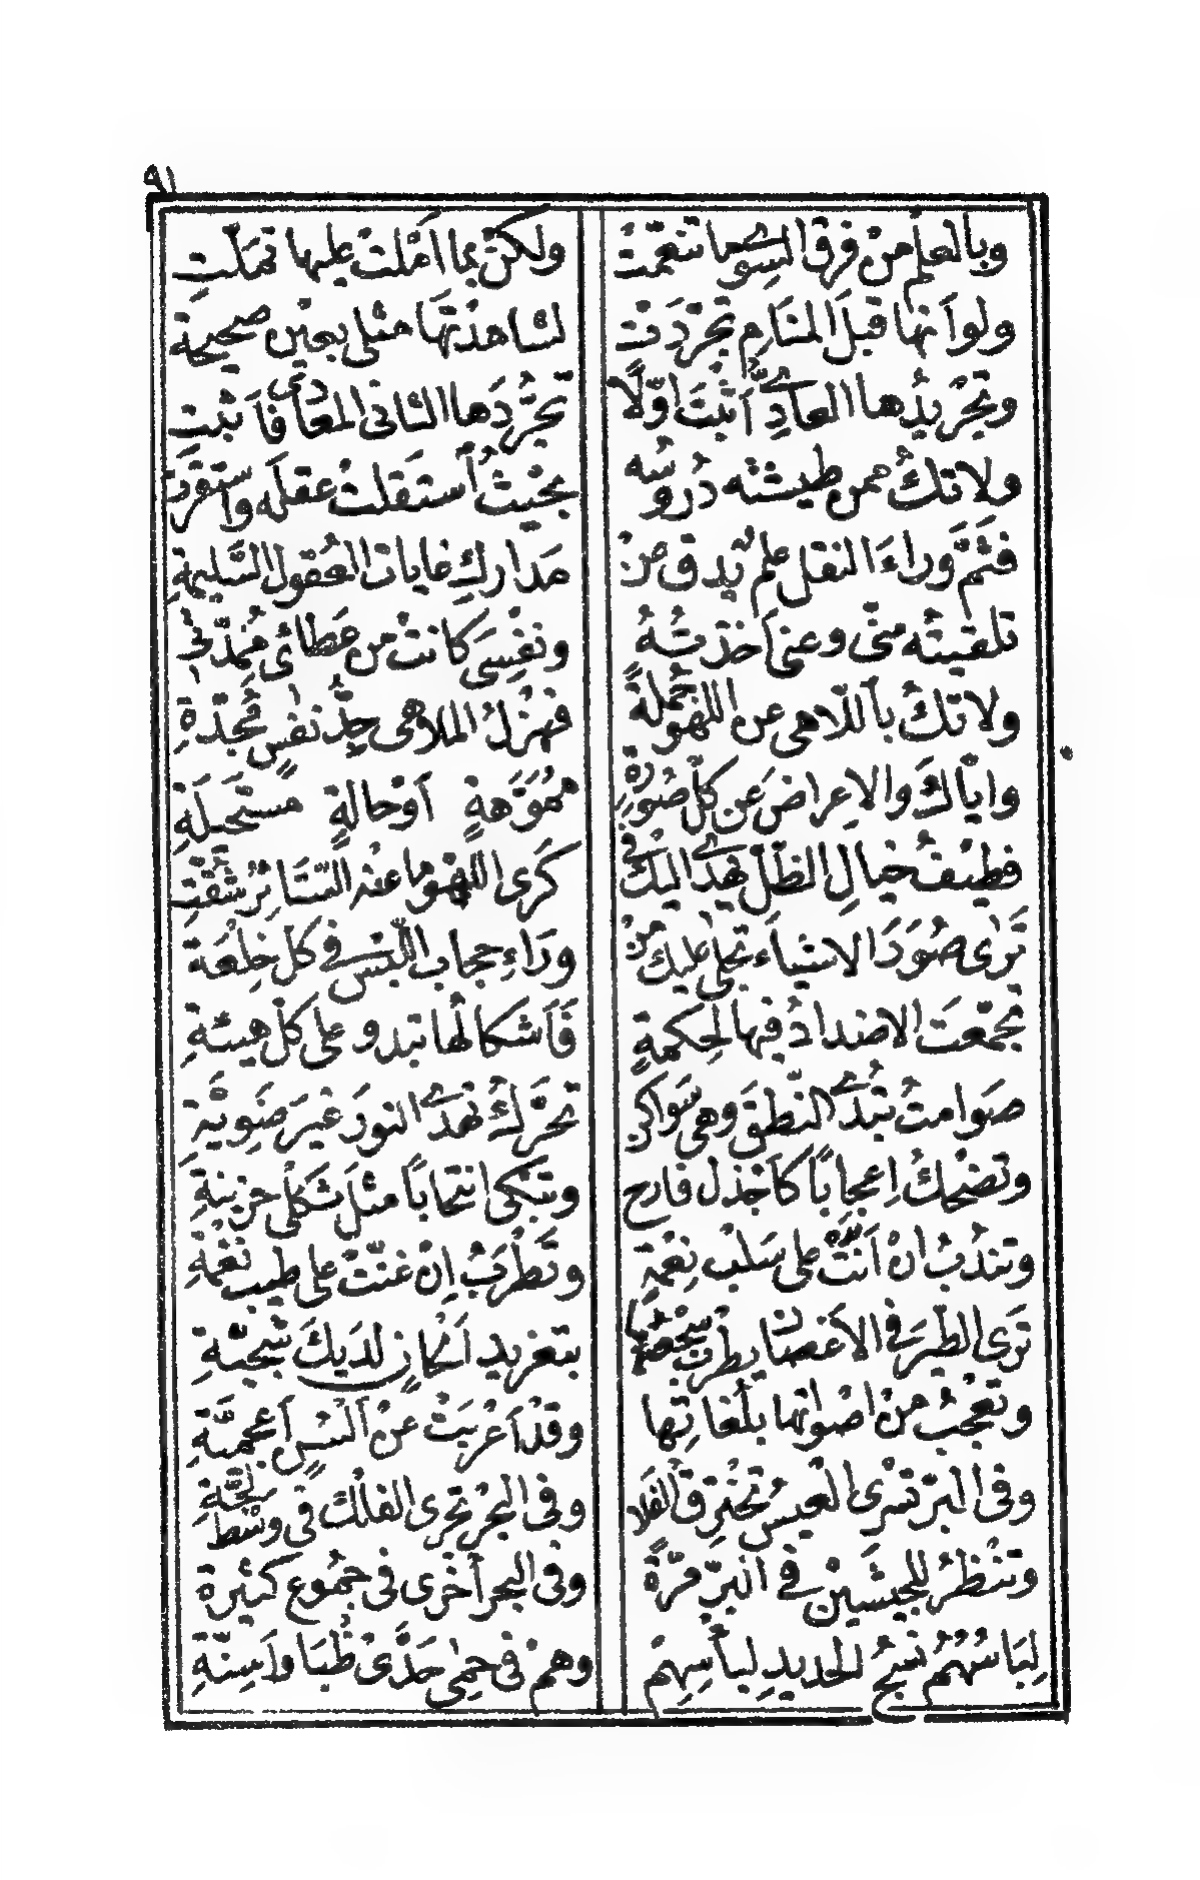 ٩١
وبالعلم من فوق السوى ما تنعّمت ولكن بما أمّلت عليها تملّت
ولو أنها قبل المنام تجرّدت لشاهدتها مثلي بعين صحيحة
وتجريدها العادىّ أثبت أوّلا تجرّدها الثاني المعادى فأثبت
ولا تك ممن طيشته دروسه بحيث استقلت عقله واستقرّت
فثمّ وراء النقل علم يدق عن مدارك غايات العقول السليمة
تلقيته منّى وعنى أخذته ونفسي كانت من عطائى ممدّتى
ولا تك باللاهى عن اللهو جملة فهزل الملاهى جدّ نفس مجدّة
واياك والاعراض عن كل صورة مموّهة أو حالة مستحيلة
فطيف خيال الظل يهدى اليك في كرى اللهو ما عنه الستائر شقّت
ترى صور الاشياء تجلى عليك من وراء حجاب اللبس في كل خلعة
تجمّعت الاضداد فيها لحكمة فأشكالها تبدو على كل هيئة
صوامت تبدى النطق وهى سواكن تحرّك تهدى النور غير ضوية
وتضحك اعجابا كأجذل فارح وتبكى انتحابا مثل ثكلى حزينة
وتندب ان أنّت على سلب نعمة وتطرب إن غنّت على طيب نغمة
ترى الطير في الأغصان يطرب سجعها بتغريد ألحان لديك شجيّة
وتعجب من اصواتها بلغاتها وقد أعربت عن ألسن أعجميّة
وفى البرّ تسرى العيس تخترق الفلا وفى البحر تجرى الفلك في وسط لجّة
وتنظر للجيشين في البرّ مرّة وفى البحر أخرى في جموع كثيرة
لباسهم نسج الحديد لبأسهم وهم في حمى حدّى ظبا وأسنّة